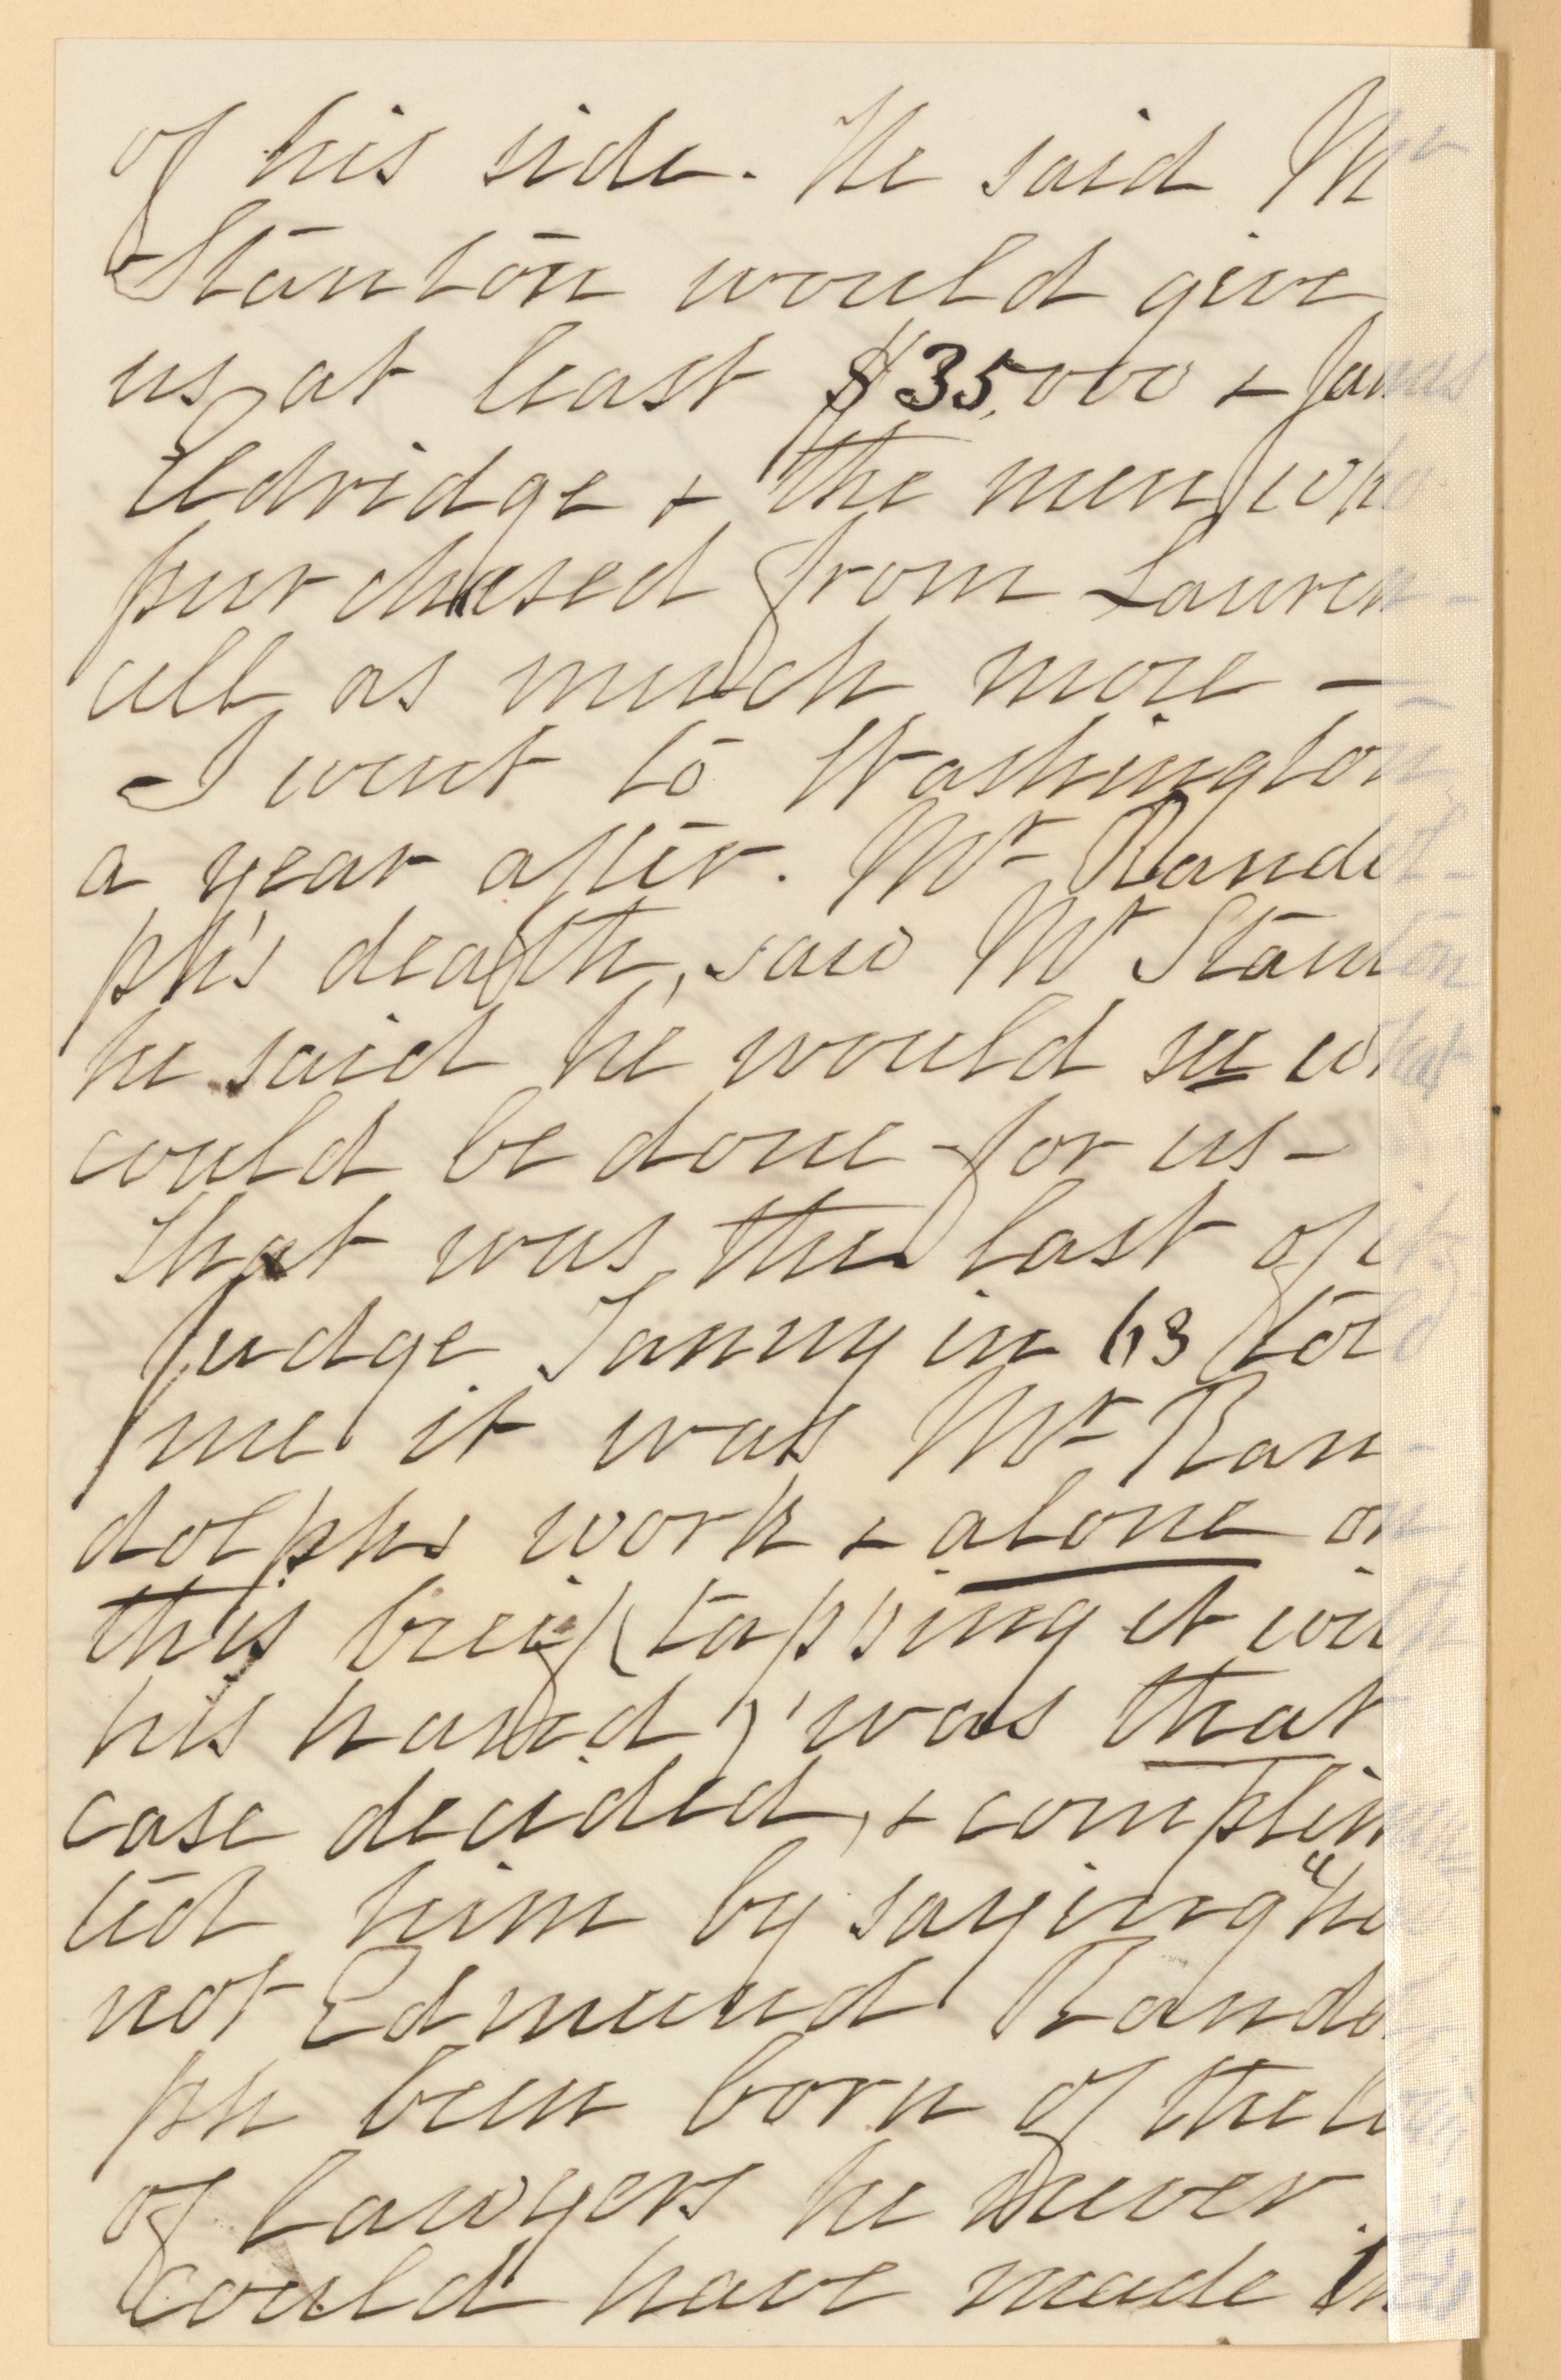 of his side. He said Mr
Stanton would give
us at least $35,000 & James
Eldridge & the men who
purchased from Lauren-
cell as much more —
I went to Washington
a year after. Mr Randol-
ph's death, saw Mr Stanton
he said he would see what
could be done for us—
that was the last of it.
Judge Tanny in 63 told
me it was Mr Ran-
dolphs work & alone on
this breif (tapping it with
his hand) was that
case decided, & complime
ted him by saying "had
not Edmund Randol
ph been born of the
of lawyers he never
could have made this